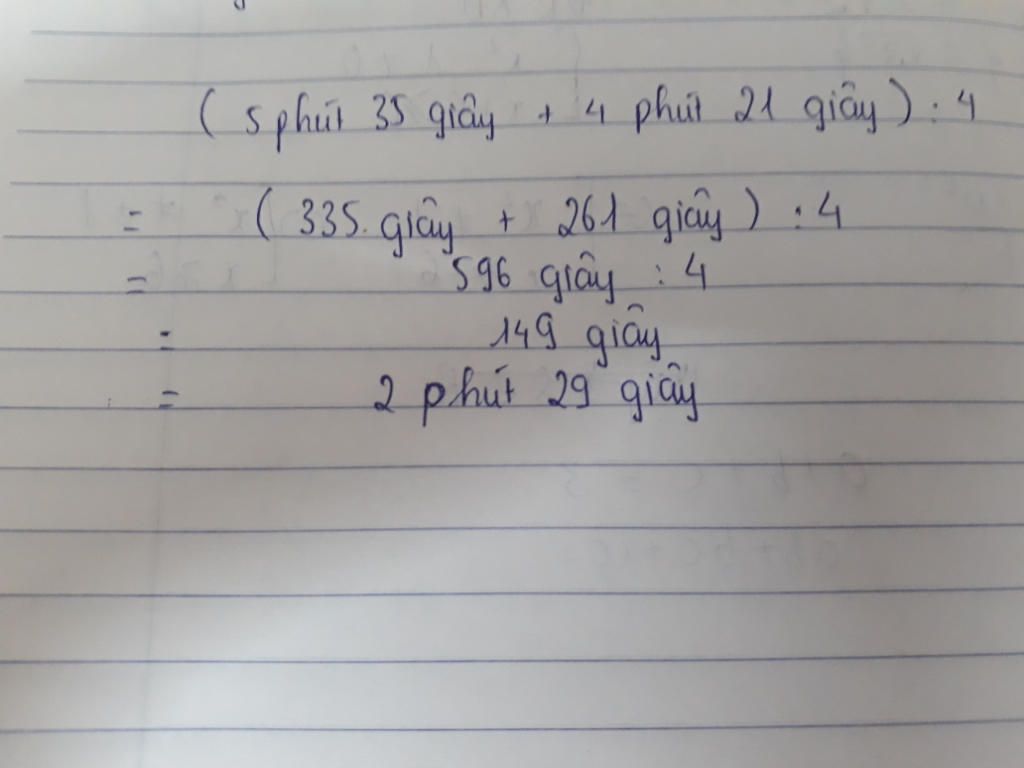 ( 5 phút 35 giây + 4 phút 21 giây ) : 4
= ( 335. giây + 261 giây ) : 4
= 596 giây : 4
= 149 giây
= 2 phút 29 giây